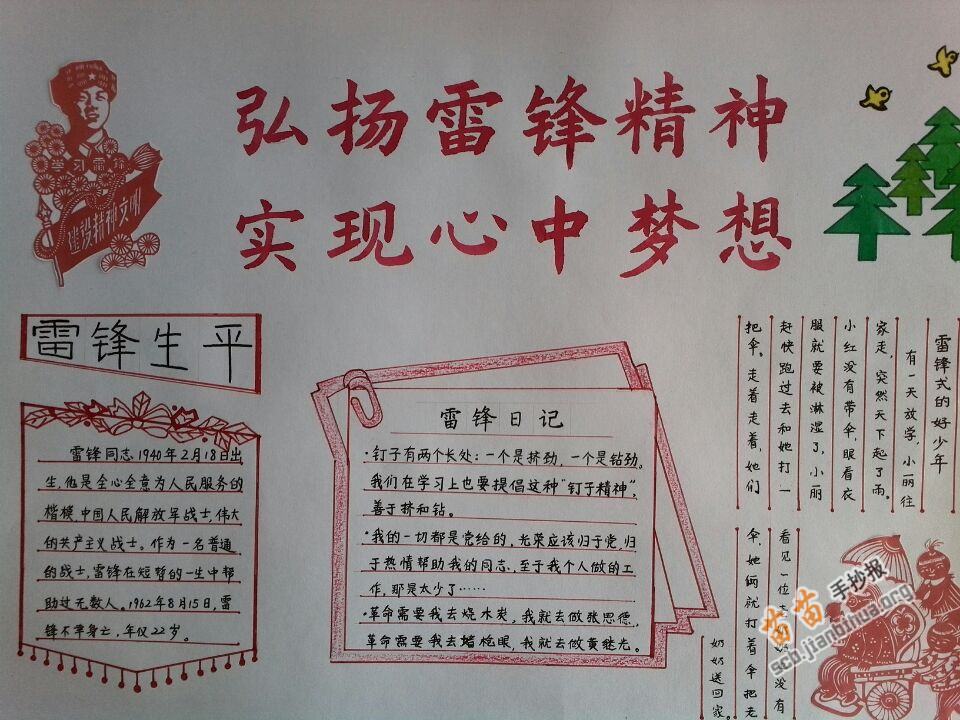 弘扬雷锋精神
实现心中梦想
学习雷锋
建设精神文明
雷锋生平
雷锋同志,1940年2月18日出
生,他是全心全意为人民服务的
楷模,中国人民解放军战士,伟大
的共产主义战士。作为一名普通
的战士,雷锋在短暂的一生中帮
助过无数人。1962年8月15日,雷
锋不幸身亡,年仅22岁。
雷锋日记
·钉子有两个长处:一个是挤劲,一个是钻劲。
我们在学习上也要提倡这种"钉子精神",
善于挤和钻。
·我的一切都是党给的,光荣应该归于党,归
于热情帮助我的同志,至于我个人做的工
作,那是太少了……
·革命需要我去烧木炭,我就去做张思德,
革命需要我去堵枪眼,我就去做黄继光。
雷锋式的好少年
有一天放学,小丽往
家走,突然天下起了雨。
小红没有带伞,眼看衣
服就要被淋湿了,小丽
赶快跑过去和她打一
把伞。走着走着,她们
看见一位没有
伞,她俩就打着伞把老
奶奶送回家。
苗苗手抄报